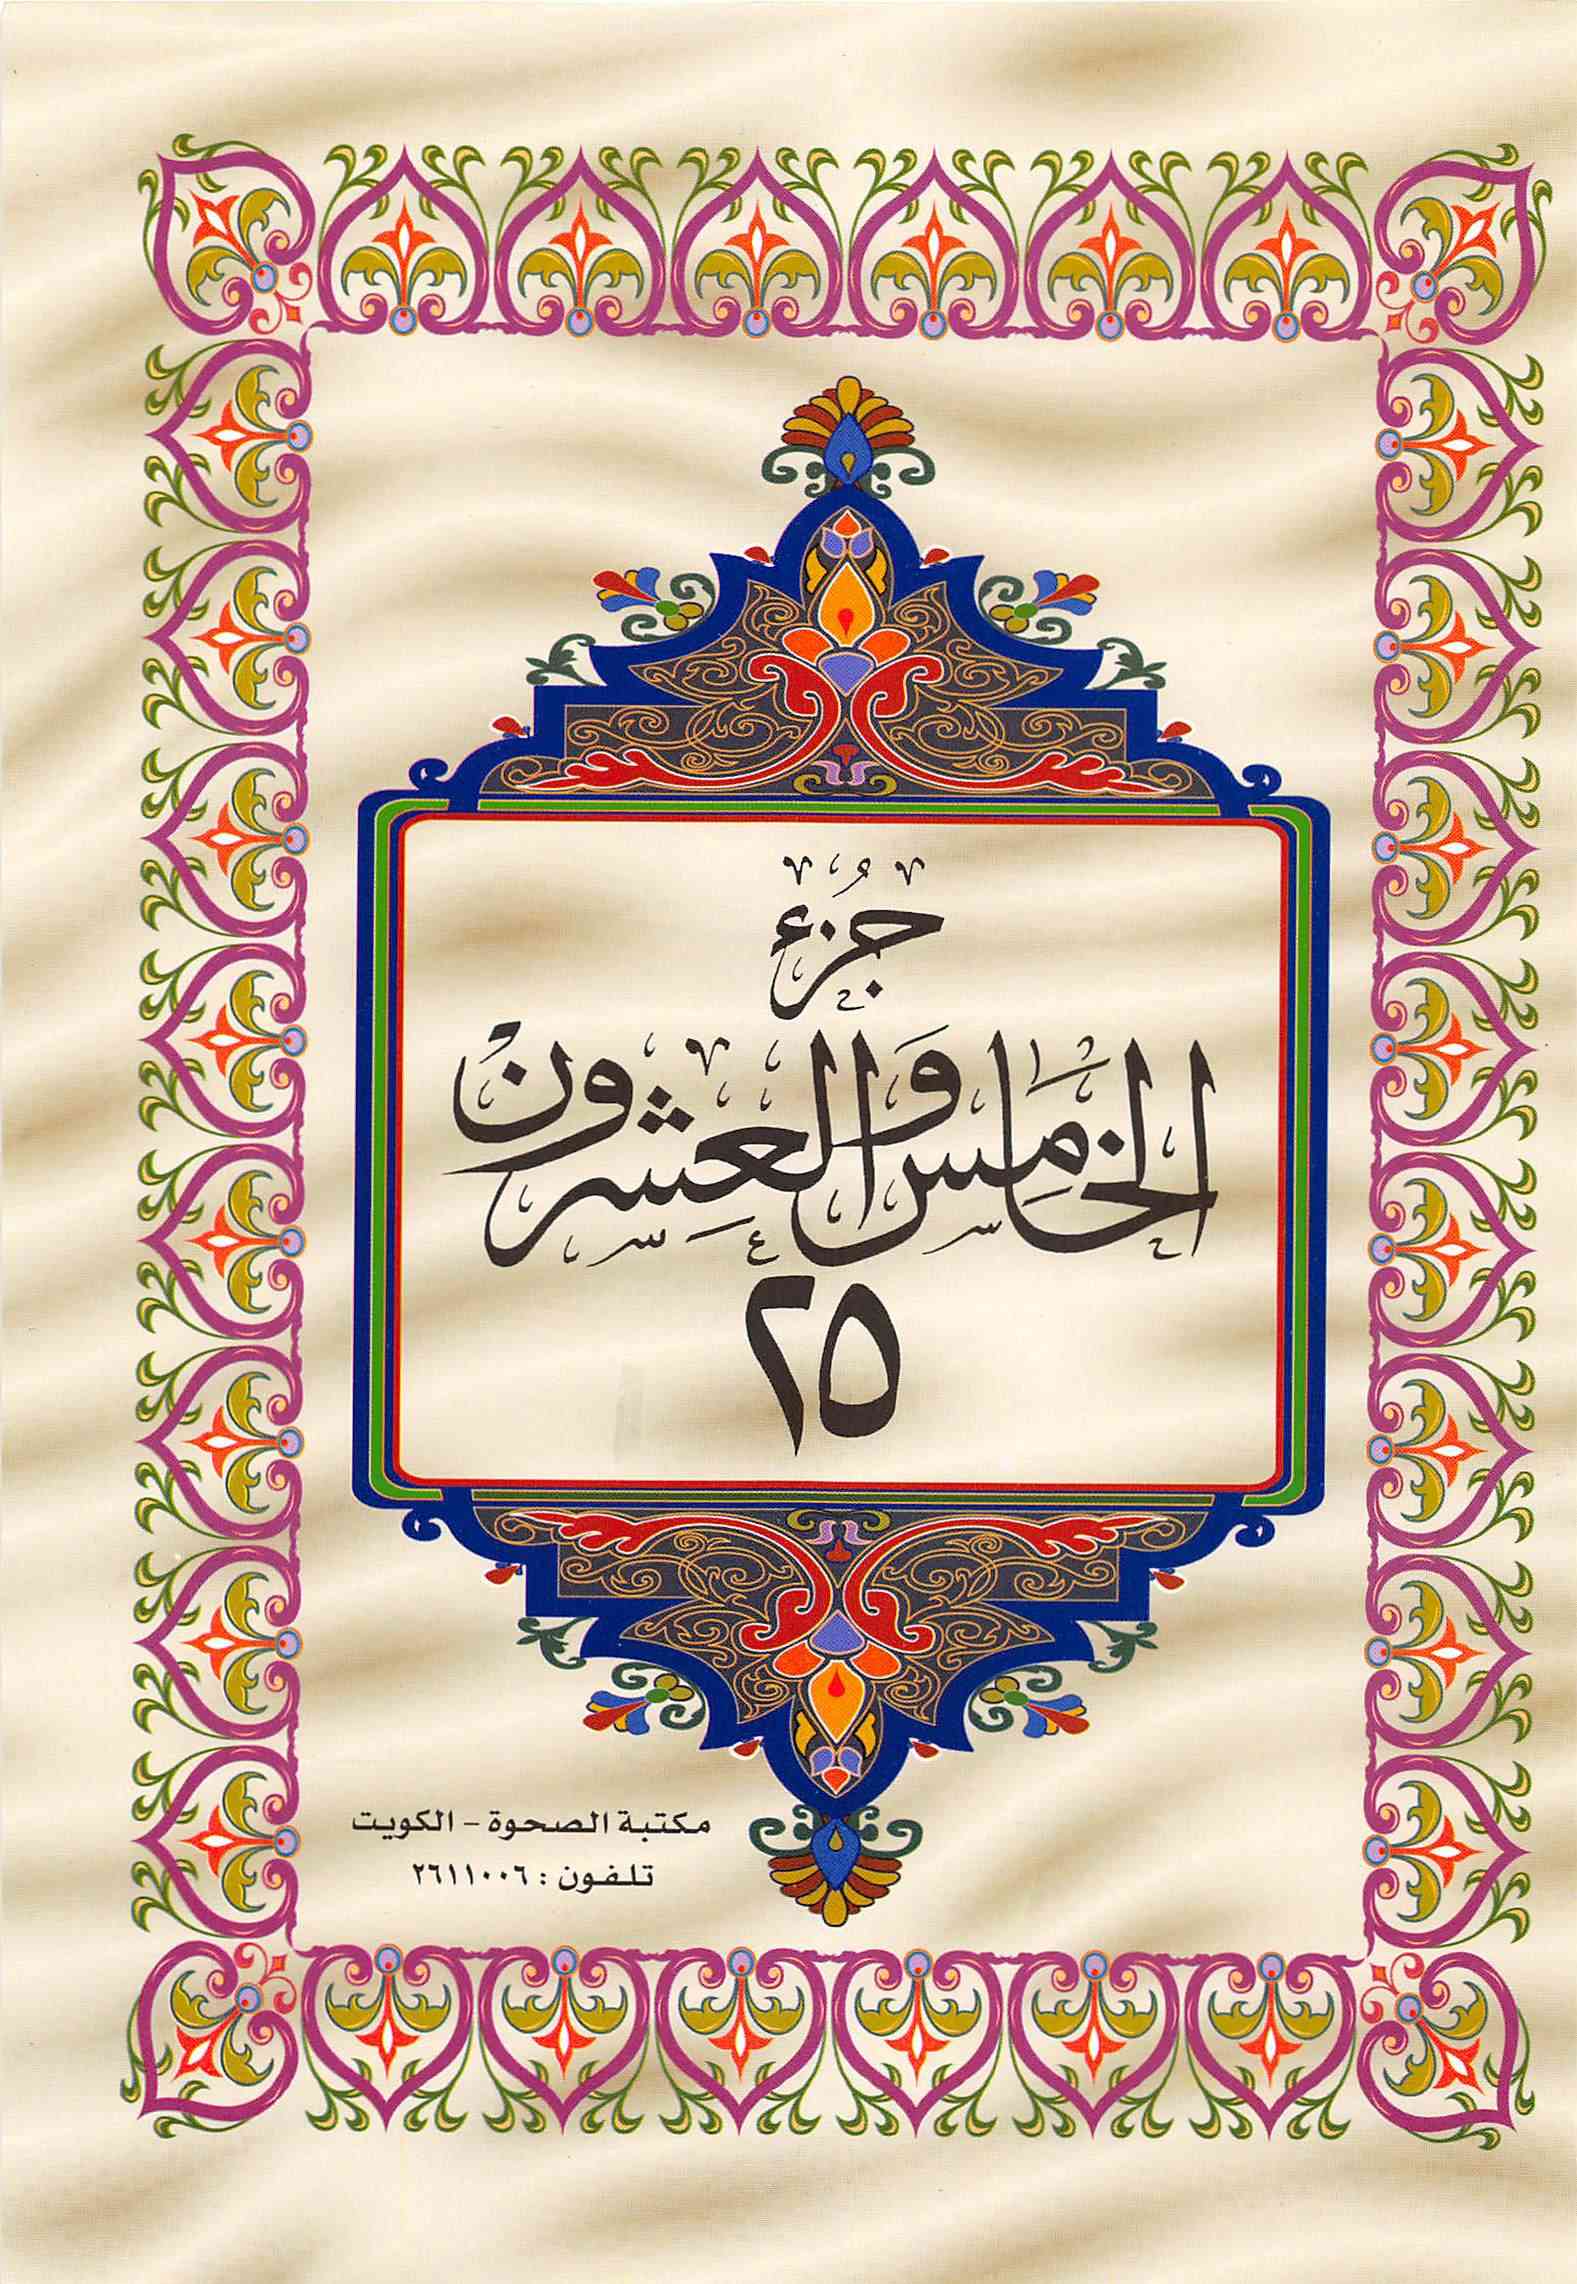 جُزْء
الخَامِس وَالعِشْرُونْ
٢٥
مكتبة الصحوة - الكويت
تلفون : ٢٦١١٠٠٦